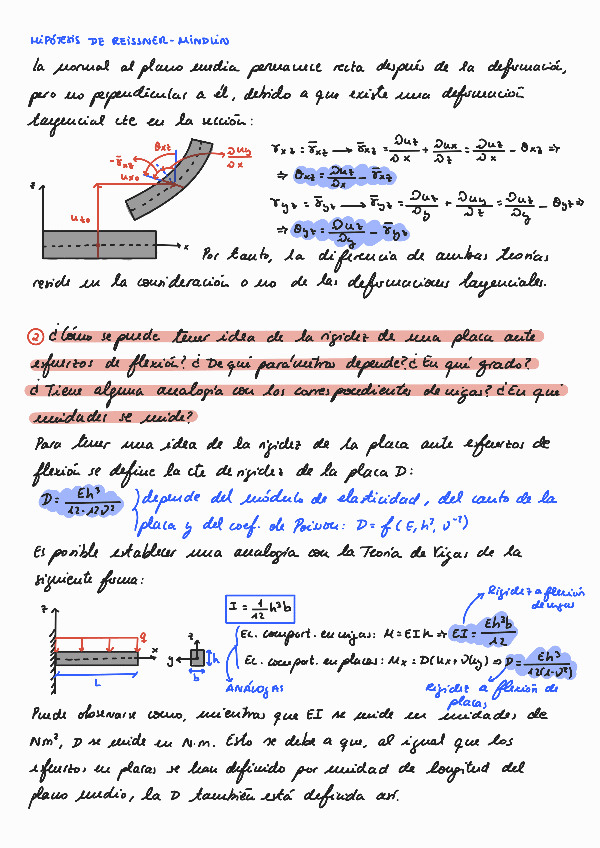 HIPÓTESIS DE REISSNER-MINDLIN
La normal al plano medio permanece recta después de la deformación,
pero no perpendicular a él, debido a que existe una deformación
tangencial cte en la sección:
γxz = γ̄xz → γ̄xz = ∂uz/∂x + ∂ux/∂z = ∂uz/∂x - θxz ⇒
⇒ θxz = ∂uz/∂x - γ̄xz
γyz = γ̄yz → γ̄yz = ∂uz/∂y + ∂uy/∂z = ∂uz/∂y - θyz ⇒
⇒ θyz = ∂uz/∂y - γ̄yz
θxz
-γ̄xz
∂uy/∂x
uxo
z
uzo
x
Por tanto, la diferencia de ambas teorías
reside en la consideración o no de las deformaciones tangenciales.
② ¿Cómo se puede tener idea de la rigidez de una placa ante
esfuerzos de flexión? ¿De qué parámetros depende? ¿En qué grado?
¿Tiene alguna analogía con los correspondientes de vigas? ¿En qué
unidades se mide?
Para tener una idea de la rigidez de la placa ante esfuerzos de
flexión se define la cte de rigidez de la placa D:
D = Eh³/12-12ν² } depende del módulo de elasticidad, del canto de la
placa y del coef. de Poisson: D = f(E, h³, ν⁻²)
Es posible establecer una analogía con la Teoría de Vigas de la
siguiente forma:
Rigidez a flexión
de vigas
I = 1/12 h³b
z
q
x
L
z
y
h
b
Ec. comport. en vigas: M = EIκ ⇒ EI = Eh³b/12
Ec. comport. en placas: Mx = D(κx + νκy) ⇒ D = Eh³/12(1-ν²)
ANÁLOGAS
Rigidez a flexión de
placas
Puede observarse como, mientras que EI se mide en unidades de
Nm², D se mide en N.m. Esto se debe a que, al igual que los
esfuerzos en placas se han definido por unidad de longitud del
plano medio, la D también está definida así.